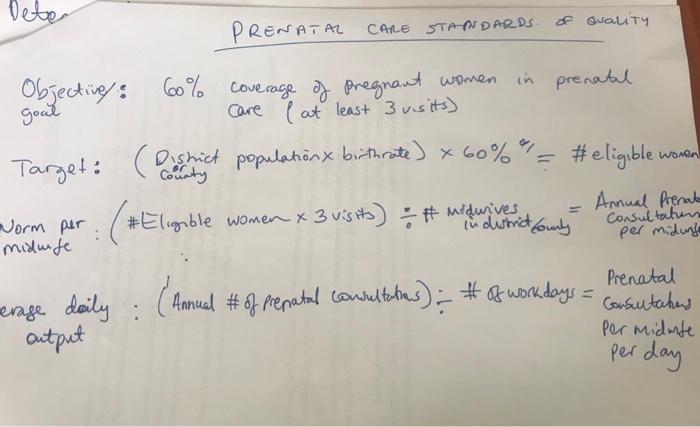 Deter
PRENATAL CARE STANDARDS of QUALITY
Objective/: 60% coverage of pregnant women in prenatal
goal care (at least 3 visits)
Target: (District population x birthrate) x 60% = # eligible women
or County
Norm per : (# Eligible women x 3 visits) ÷ # midwives = Annual Prenat
midwife in district/county Consultations
per midwife
erage daily : (Annual # of prenatal consultations) ÷ # of workdays = Prenatal
output Consultations
per midwife
per day